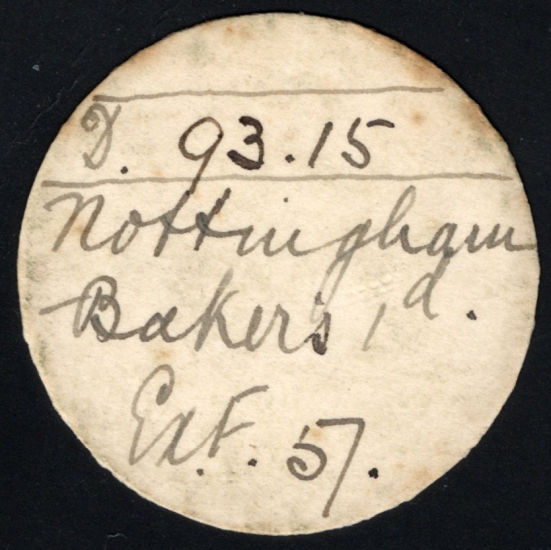 D. 93.15
Nottingham
Bakers 1d.
Ex.F. 57.